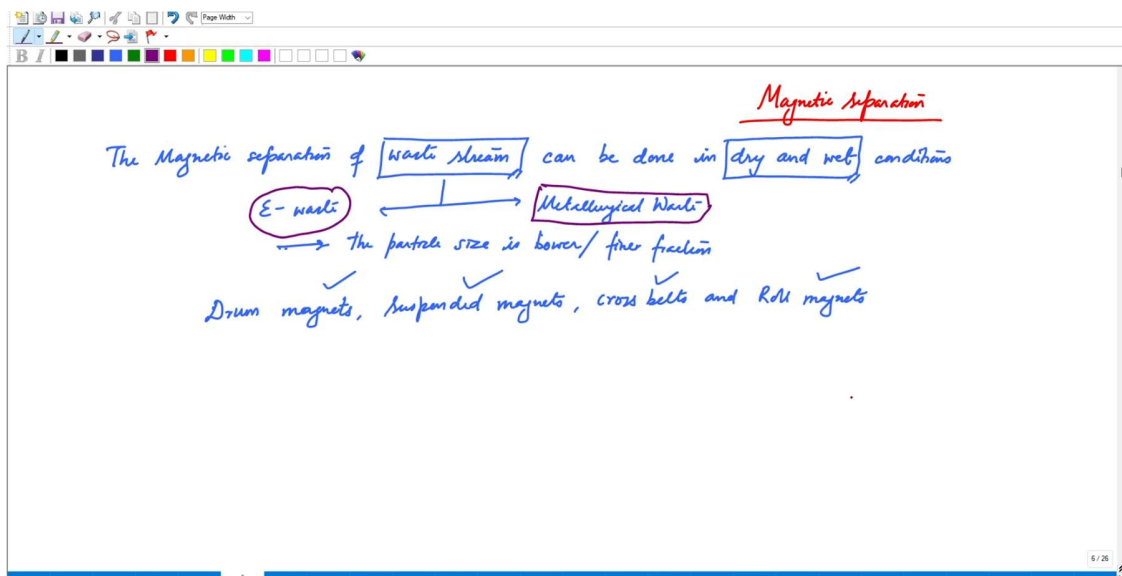 Page Width
B I
Magnetic separation
The Magnetic separation of waste stream can be done in dry and wet conditions
E-waste Metallurgical Waste
the particle size is lower/ finer fraction
Drum magnets, suspended magnets, cross belts and Roll magnets
6 / 26